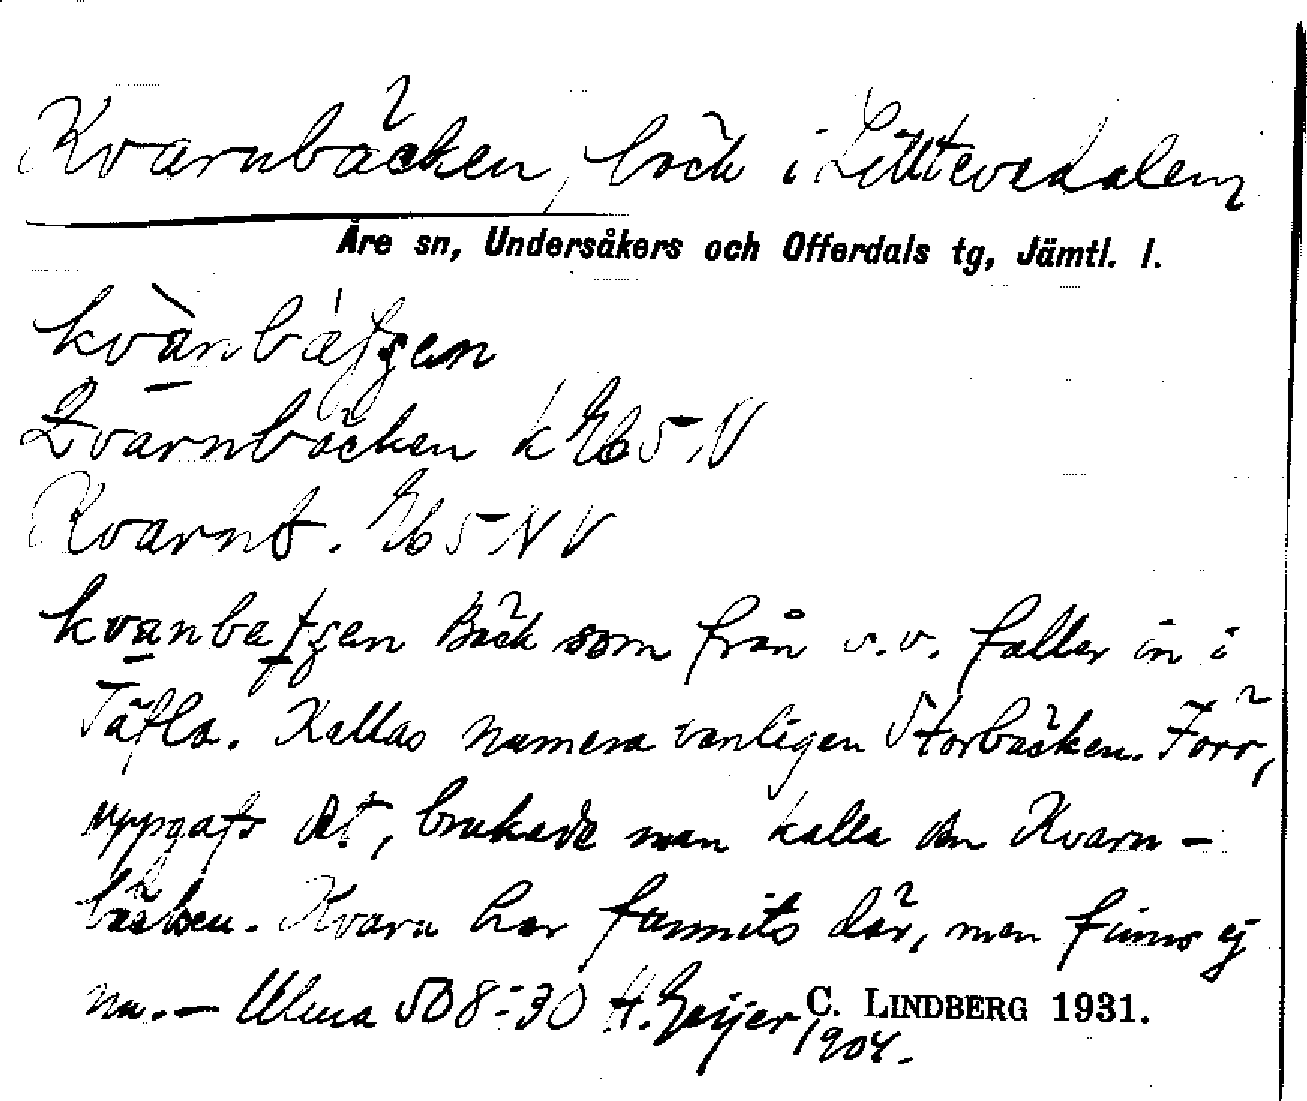 Kvarnbäcken, bäck i Littevedalen,
Åre sn, Undersåkers och Offerdals tg, Jämtl. l.
kvànbáʃʒen
Kvarnbäcken k Eb 5 NV
Kvarnb. Eb 5 NV
kvanbeʃʒen Bäck som från v.v. faller in i
Täfla. Kallas numera vanligen Storbäcken. Förr,
uppgafs det, brukade man kalla den Kvarn-
bäcken. Kvarn har funnits där, men finns ej
nu. — Ulma 508:30 H. Geijer C. LINDBERG 1931.
1904.